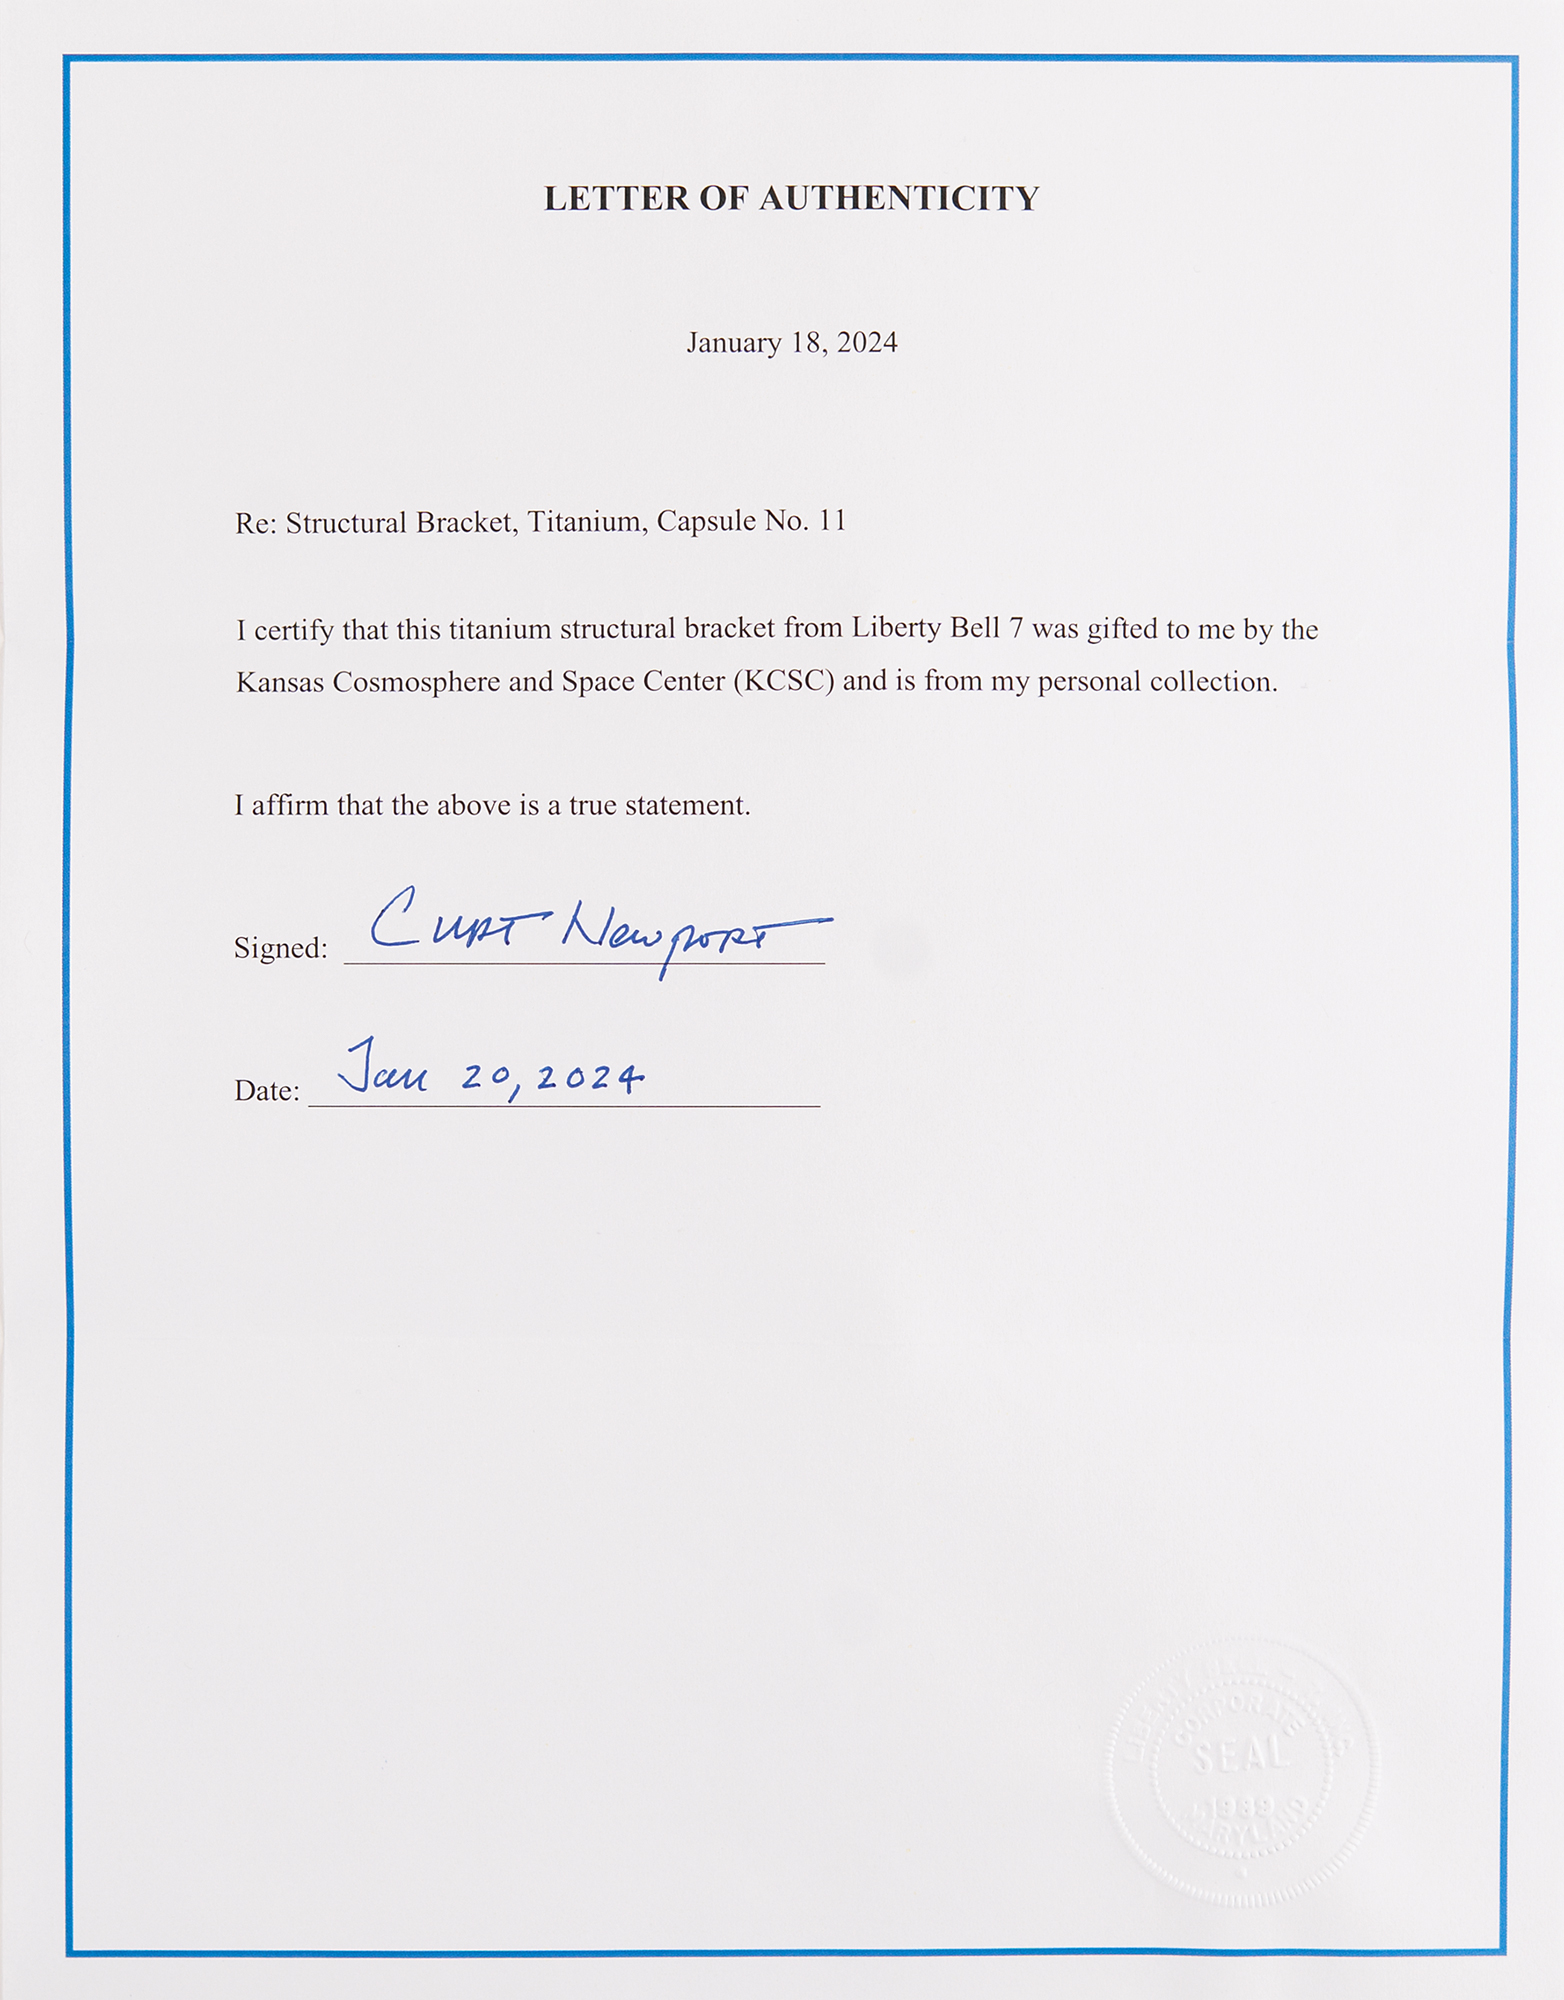 LETTER OF AUTHENTICITY
January 18, 2024
Re: Structural Bracket, Titanium, Capsule No. 11
I certify that this titanium structural bracket from Liberty Bell 7 was gifted to me by the
Kansas Cosmosphere and Space Center (KCSC) and is from my personal collection.
I affirm that the above is a true statement.
Signed: Curt Newport
Date: Jan 20, 2024
LIBERTY
CORPORATE
SEAL
1989
MARYLAND